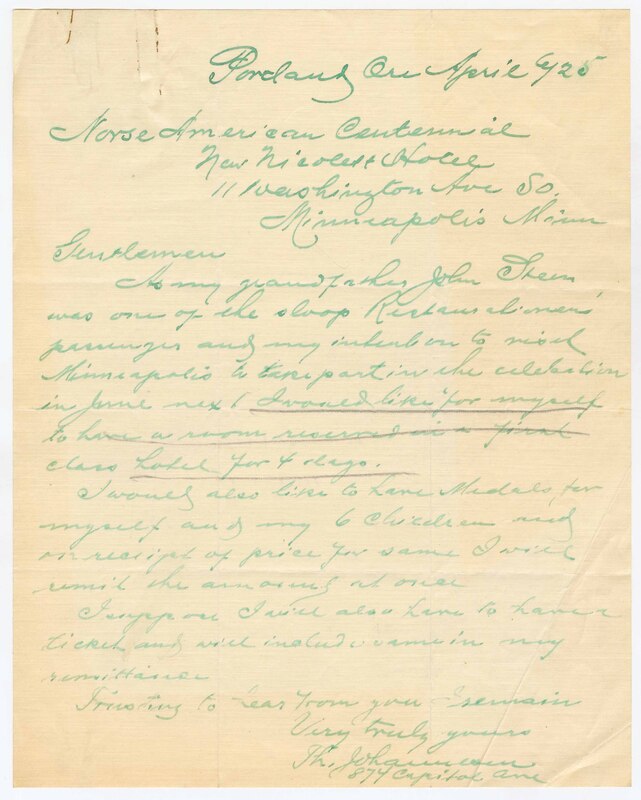 Portland Ore April 6/25
Norse American Centennial
New Nicolett Hotel
11 Washington Ave So.
Minneapolis Minn
Gentlemen
As my grandfather John Steen
was one of the sloop Restaurationens
passenger and my intention to visit
Minneapolis to take part in the celebration
in June next I would like for myself
to have a room reserved in a first
class hotel for 4 days.
I would also like to have Medals for
myself and my 6 Children and
on receipt of price for same I will
remit the amount at once
I suppose I will also have to have a
ticket and will include same in my
remittance
Trusting to hear from you I remain
Very truly yours
Th. Johannesen
874 Capitol Ave